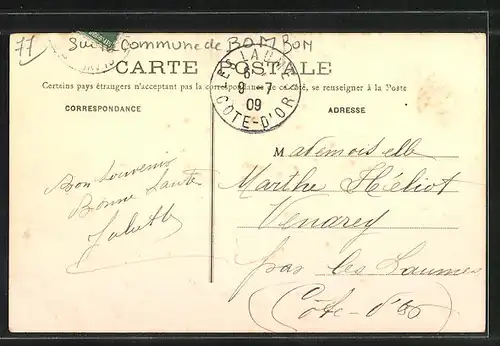 77 Sur la commune de BOMBON
CARTE POSTALE
Certains pays étrangers n'acceptent pas la correspondance de ce côté, se renseigner à la Poste
CORRESPONDANCE
ADRESSE
LES LAUMES
6
9 - 7
09
COTE-D'OR
Bon Souvenir
Bonne Santé
Juliette
Mademoiselle
Marthe Héliot
Venarey
par les Laumes
(Côte-d'Or)